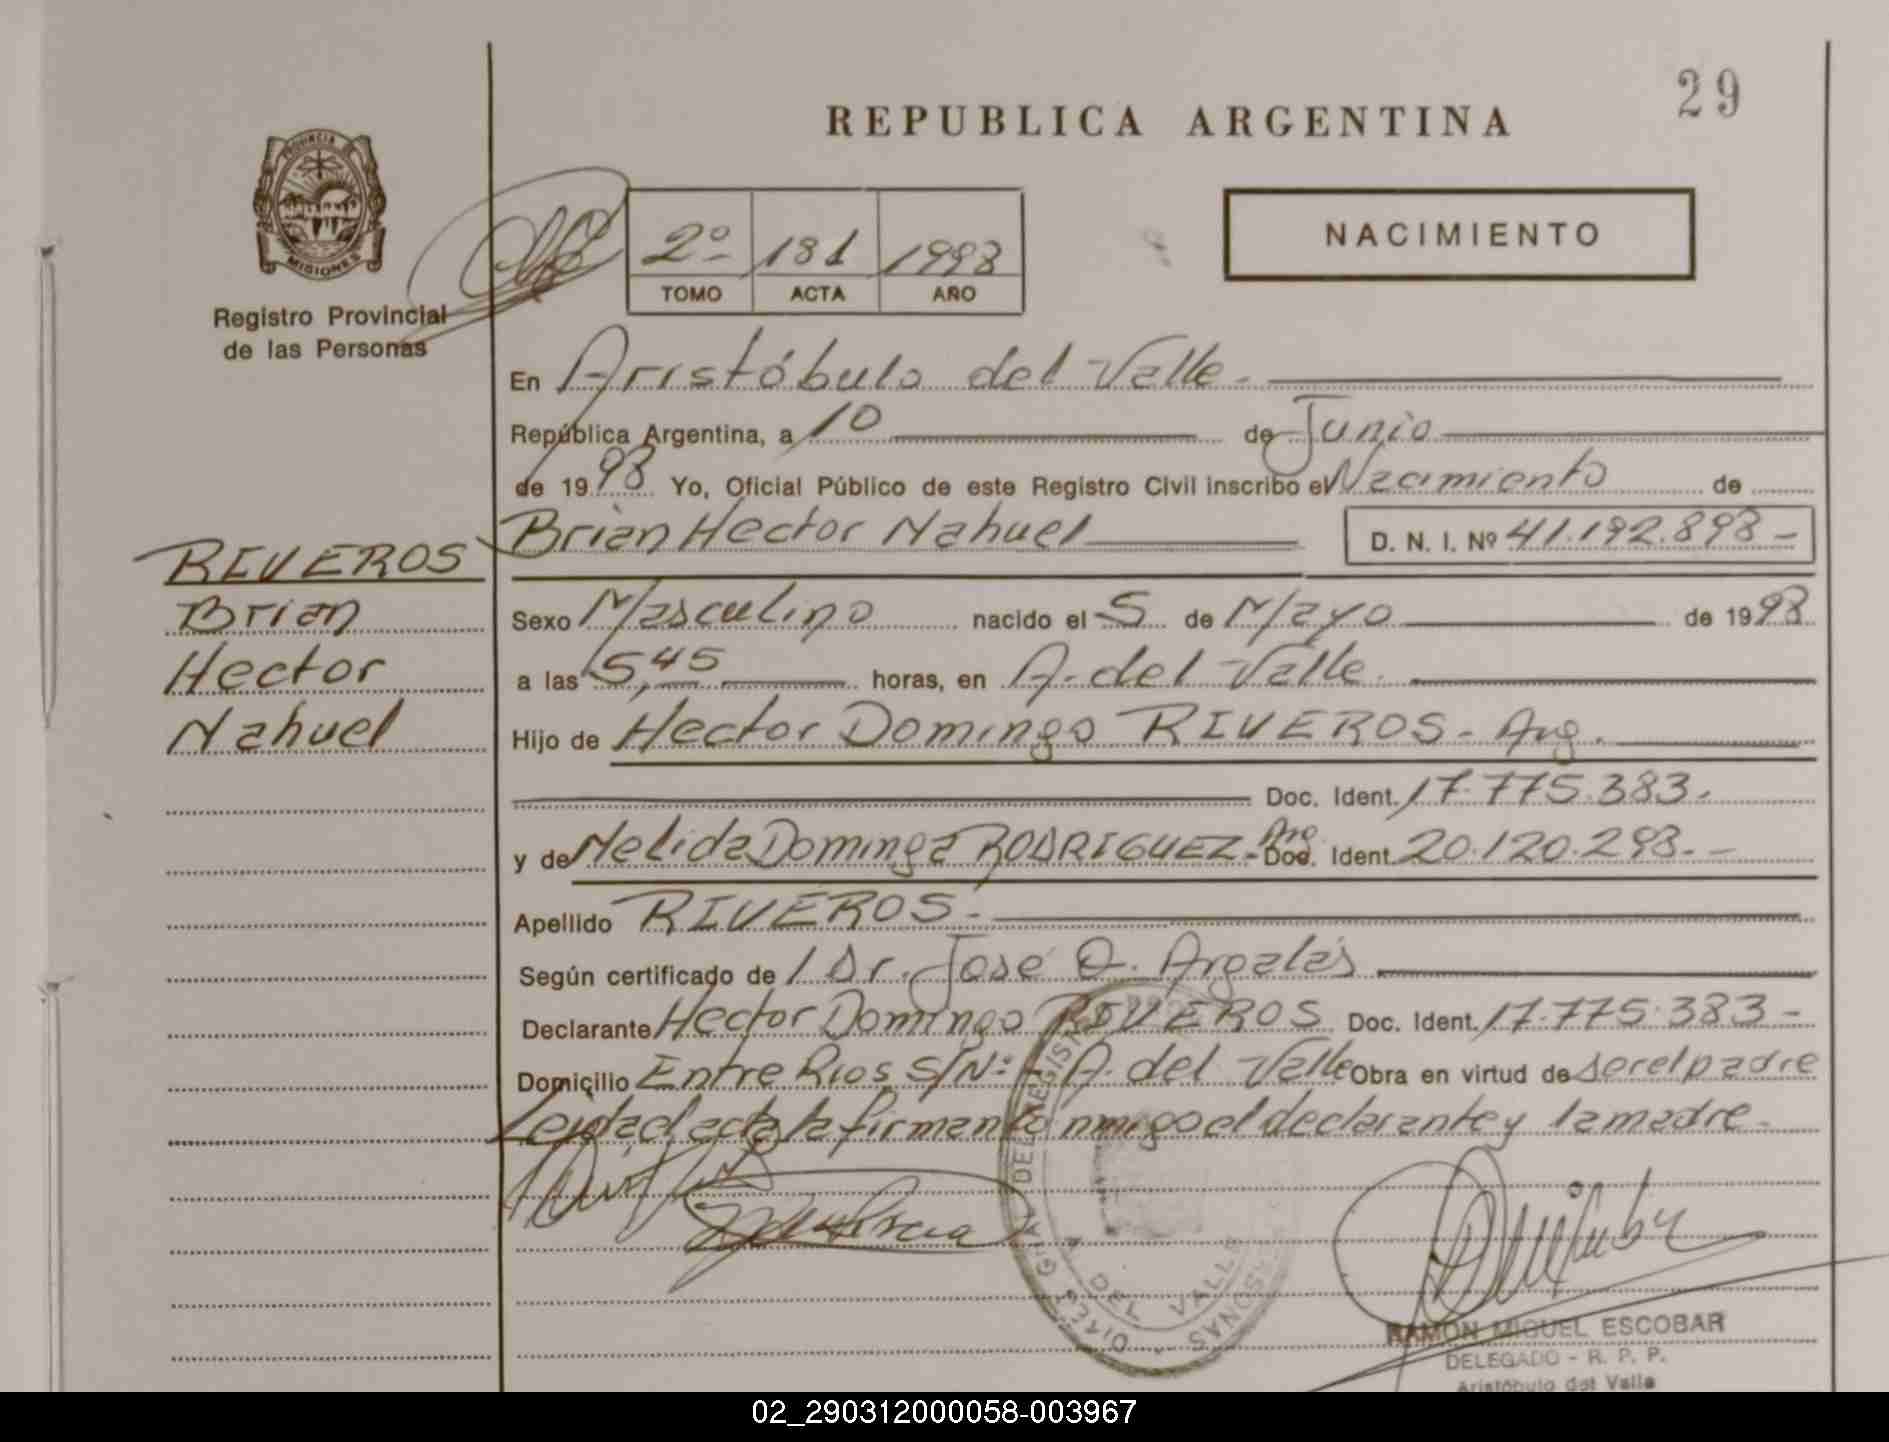 29
REPUBLICA ARGENTINA
PROVINCIA DE
MISIONES
Registro Provincial
de las Personas
2º 181 1998
TOMO ACTA AÑO
NACIMIENTO
En Aristóbulo del Valle.
República Argentina, a 10 de Junio
de 1998 Yo, Oficial Público de este Registro Civil inscribo el Nacimiento de
Brian Hector Nahuel D. N. I. Nº 41.192.898-
RIVEROS
Brian
Hector
Nahuel
Sexo Masculino nacido el 5 de Mayo de 1998
a las 5,45 horas, en A. del Valle.
Hijo de Hector Domingo RIVEROS - Arg.
Doc. Ident. 17.775.383.
y de Nelida Dominga RODRIGUEZ - Arg. Doc. Ident. 20.120.298.-
Apellido RIVEROS.
Según certificado de Dr. José O.
Declarante Hector Domingo RIVEROS Doc. Ident. 17.775.383-
Domicilio Entre Rios S/Nº- A. del Valle Obra en virtud de ser el padre
Leida el acta la firman conmigo el declarante y la madre.
RAMON MIGUEL ESCOBAR
DELEGADO - R. P. P.
Aristóbulo del Valle
02_290312000058-003967